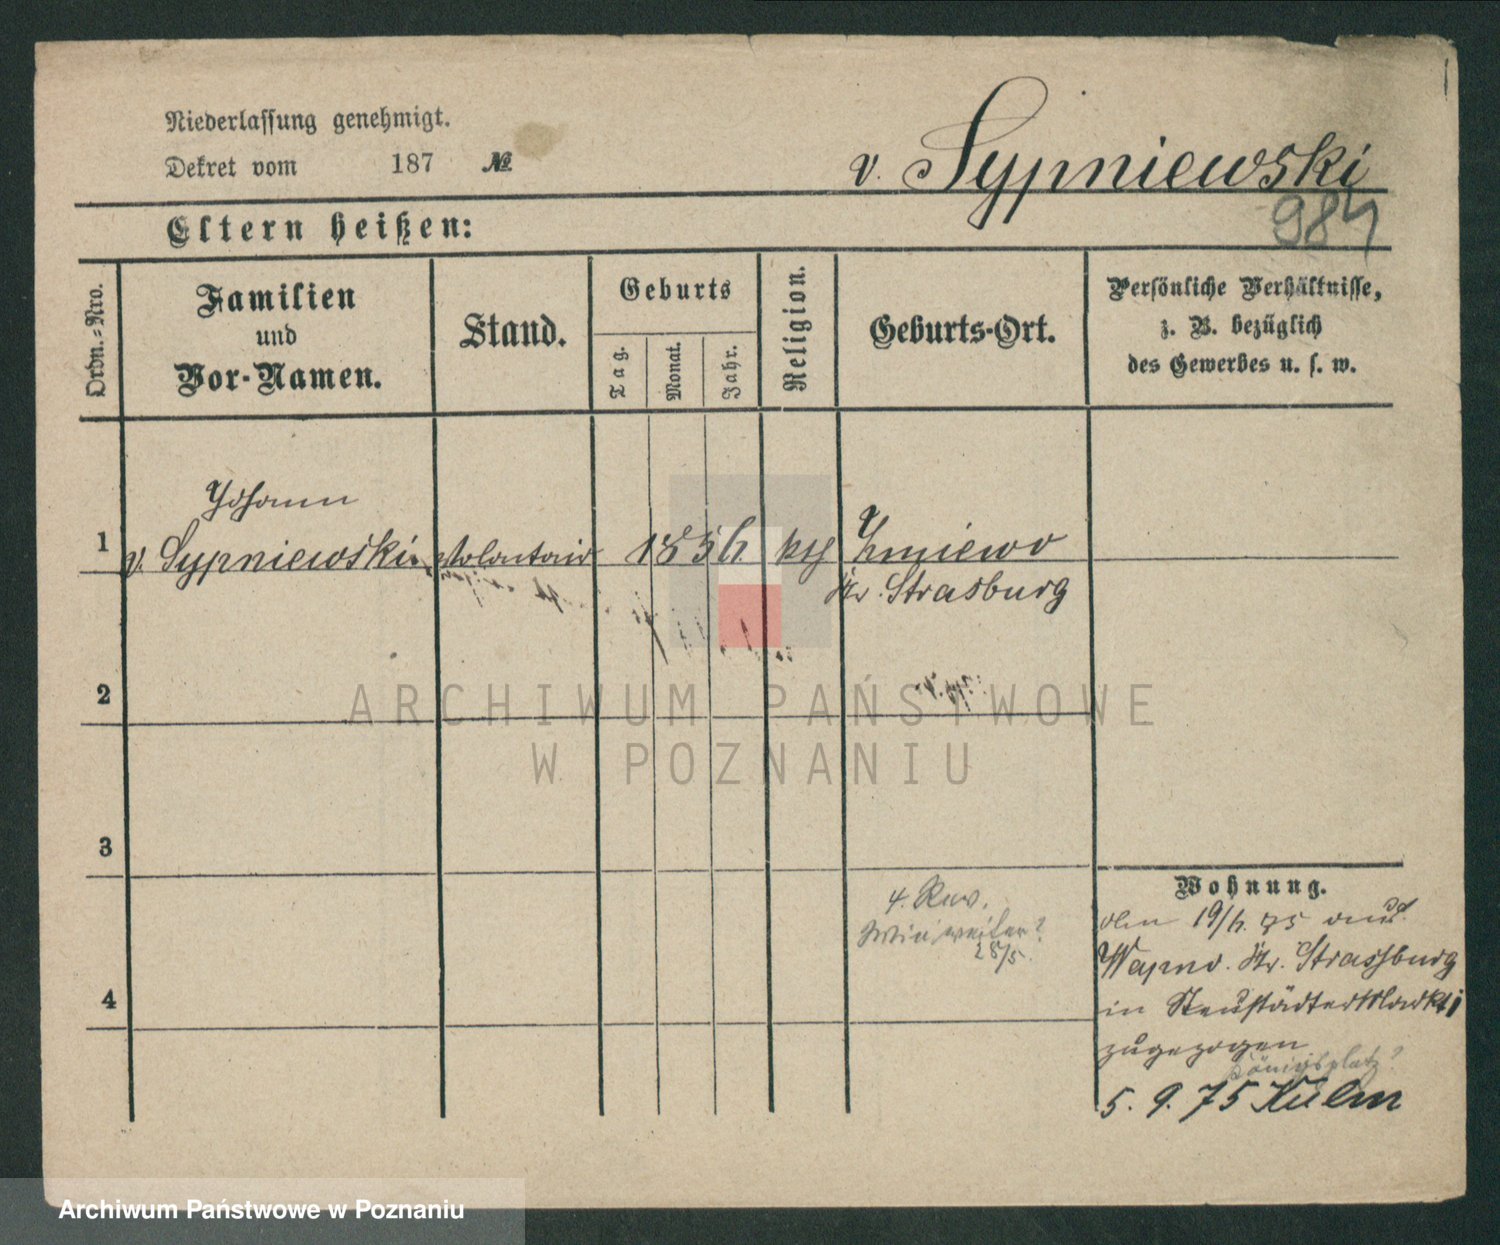 Niederlassung genehmigt.
Dekret vom 187 №
v. Sypniewski
984
Eltern heißen:
Ordn.-Nro.
Familien
und
Vor-Namen.
Stand.
Geburts
Tag.
Monat.
Jahr.
Religion.
Geburts-Ort.
Persönliche Verhältnisse,
z. B. bezüglich
des Gewerbes u. s. w.
Johann
1 v. Sypniewski Volontair 1856. Zmiewo
Kr. Strasburg
2
ARCHIWUM PAŃSTWOWE
W POZNANIU
3
Wohnung.
4. Rev.
28/5.
19/6. 75 aus
Kr. Strassburg
4
in Neustädter Markt
zugezogen
Königsplatz?
5. 9. 75 Kulm
Archiwum Państwowe w Poznaniu